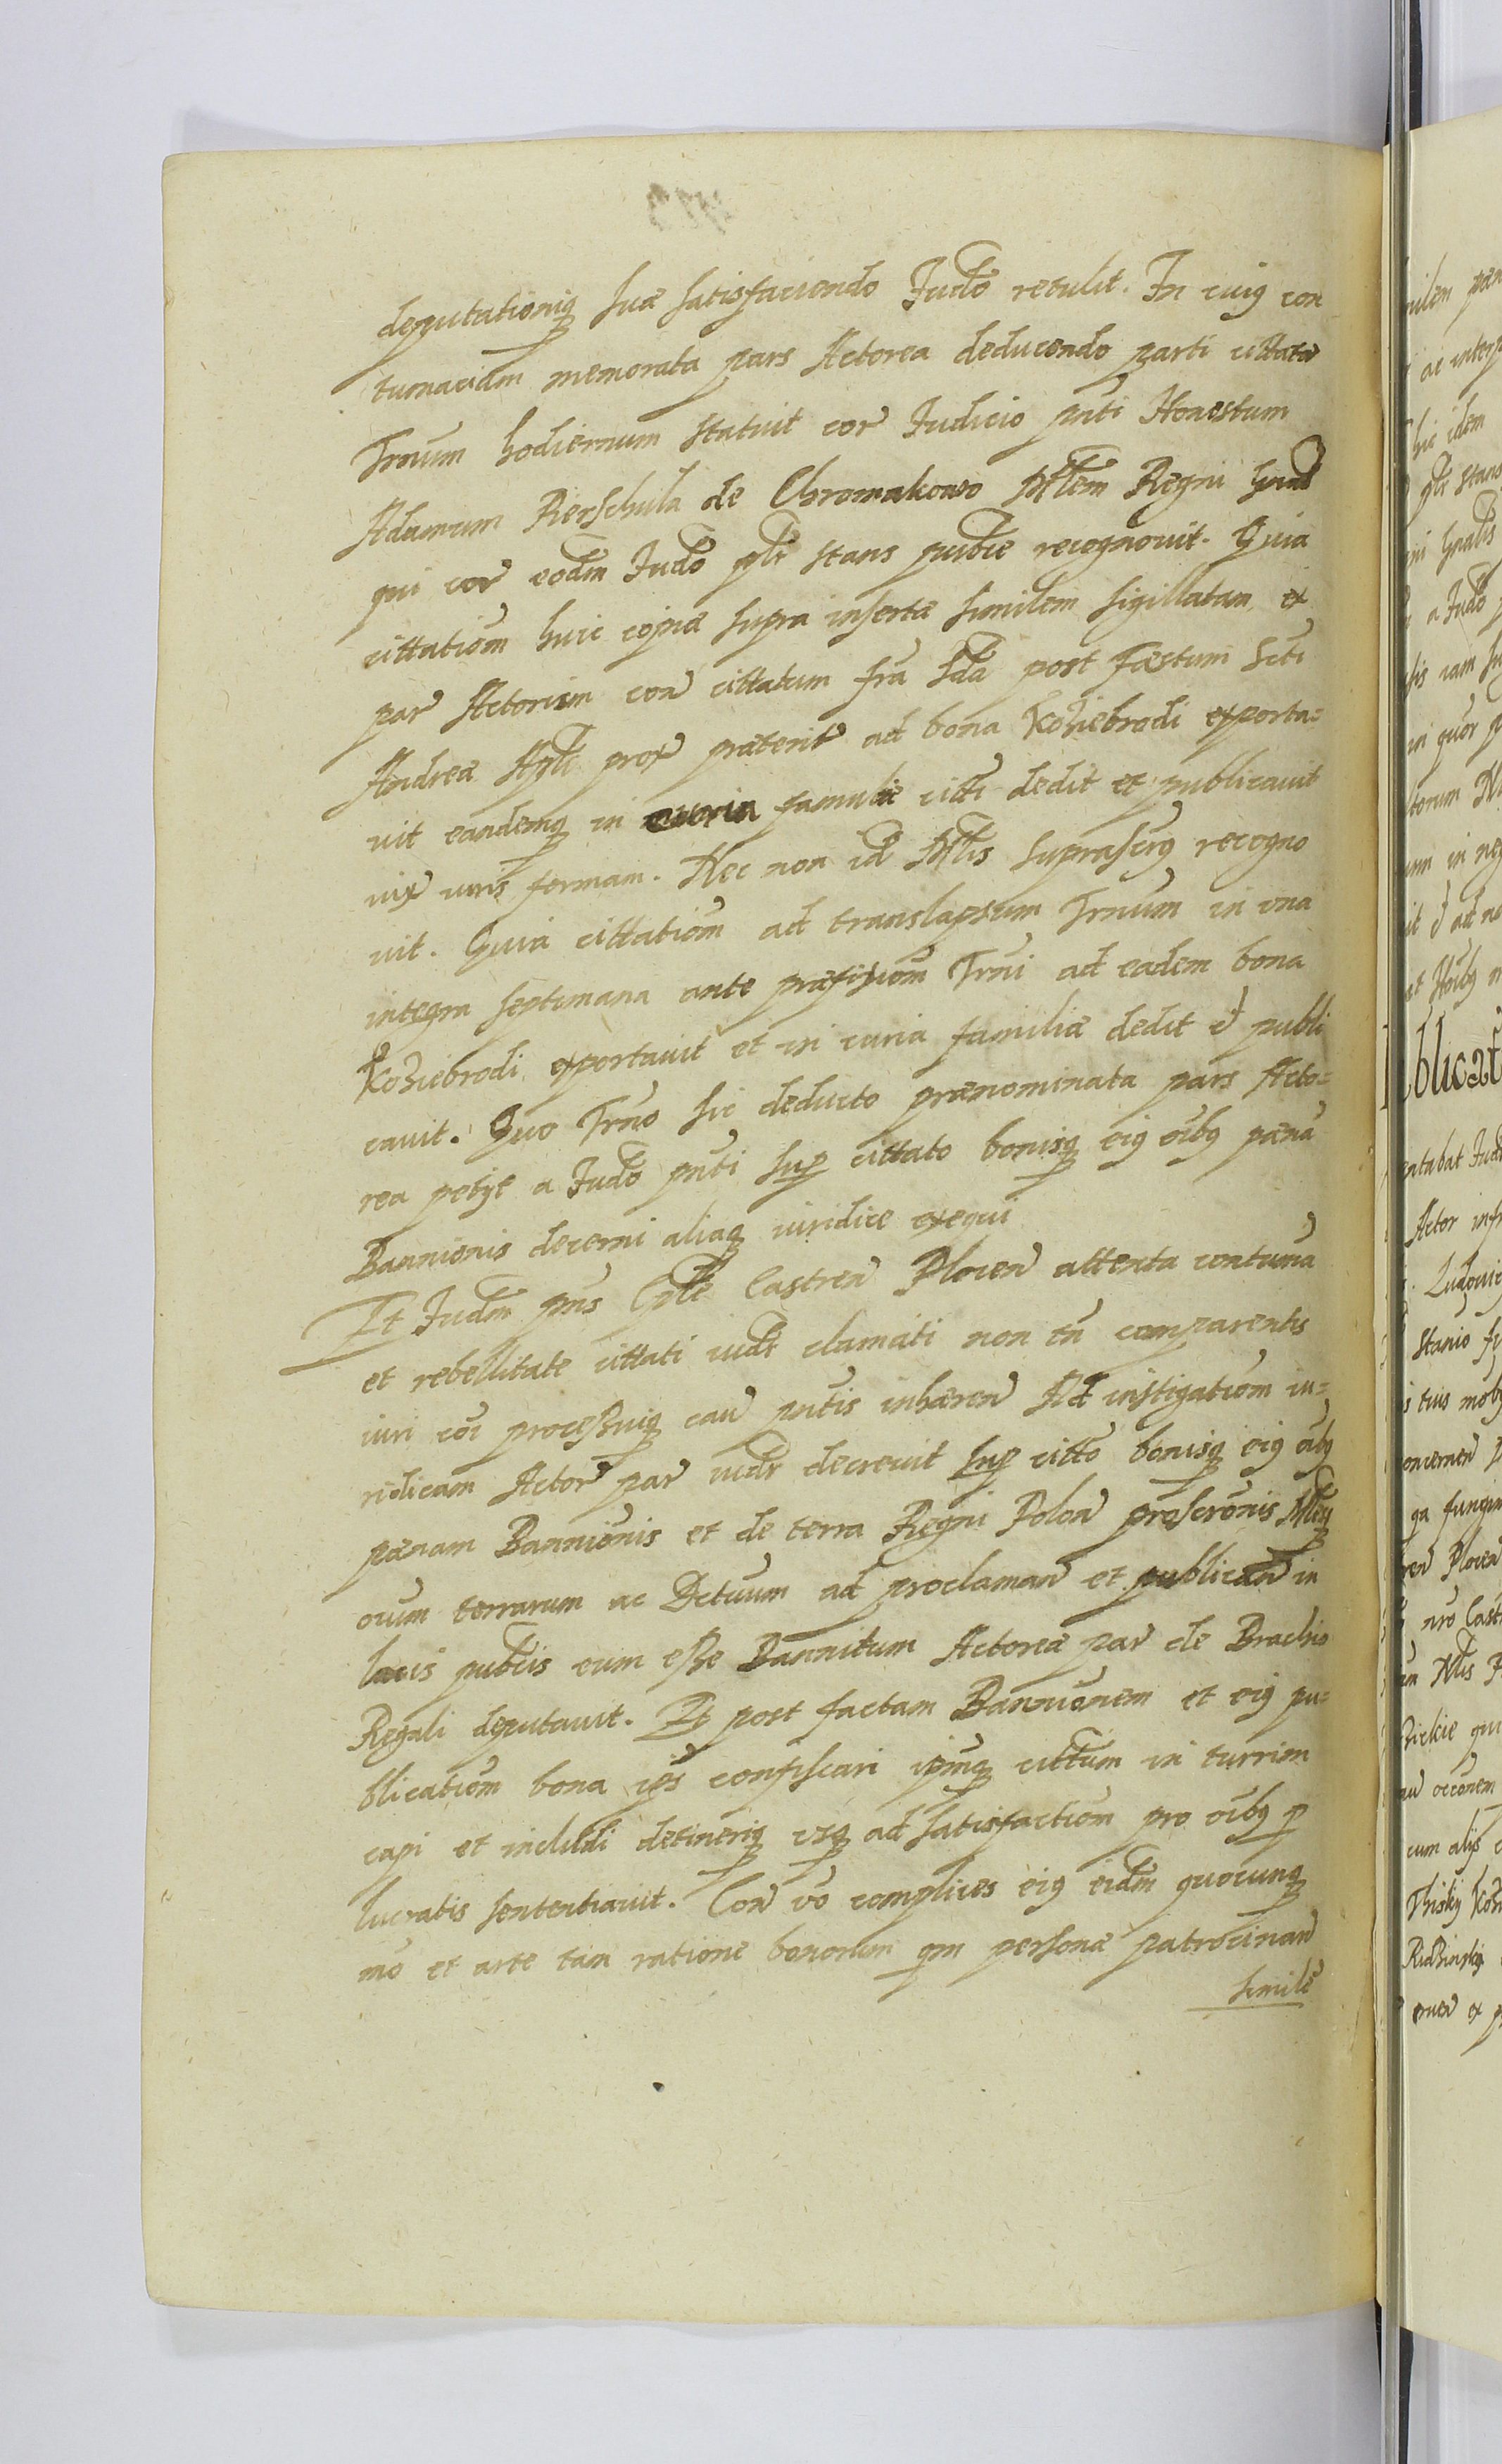 deputationiq suæ satisfaciendo Judo retulit. In cuig con
tumaciam memorata pars Actorea deducendo parti cittatæ
Trnum hodiernum statuit cor Judicio pnti Honestum
Adamum Pierschula de Chromakowo Mtlem Regni Gnal
qui cor eodm Judo plr stans publce recognovit. Quia
cittatiom huic copiæ supra insertæ similem sigillatam ex
par Actorum con cittatum fra 2da post Fæstum Scti
Andreæ Apli prox præterit ad bona Koziebrodi exporta=
vit eandemq in curia familiæ citti dedit et publicavit
iux iuris formam. Nec non id Mtlis suprascrg recogno
vit. Quia cittatiom ad translapsum Trnum in una
integra septimana ante præfixiom Trni ad eadem bona
Koziebrodi exportavit et in curia familiæ dedit et publi
cavit. Quo Trno sic deducto prænominata pars Acto=
rea petyt a Judo pnti sup cittato bonisq eig oibg pænã
Bannionis decerni aliaq iuridice exequi
Et Judm pns Cple Castren Plocen attenta contuma
et rebellitate cittati iudr clamati non tn comparentis
iuri coi processuiq cau pntis inhæren Ad instigatiom iu=
ridicam Actor par iudr decrevit sup citto bonisq eig oibg
pænam Bannionis et de terra Regni Polon proscronis
oium terrarum ac Dctuum ad proclaman et publican in
locis publcis eum esse Bannitum Actoreæ par de Brachio
Regali deputavit. Et post factam Bannionem et eig pu=
blicatiom bona ips confiscari ipmq cittum in turrim
capi et includi detineriq usq ad satisfactiom pro oibg p
lucratis sententiavit. Con vo complices eig eidm quocunq
mo et arte tam ratione bonorum qm personæ patrocinan
simile